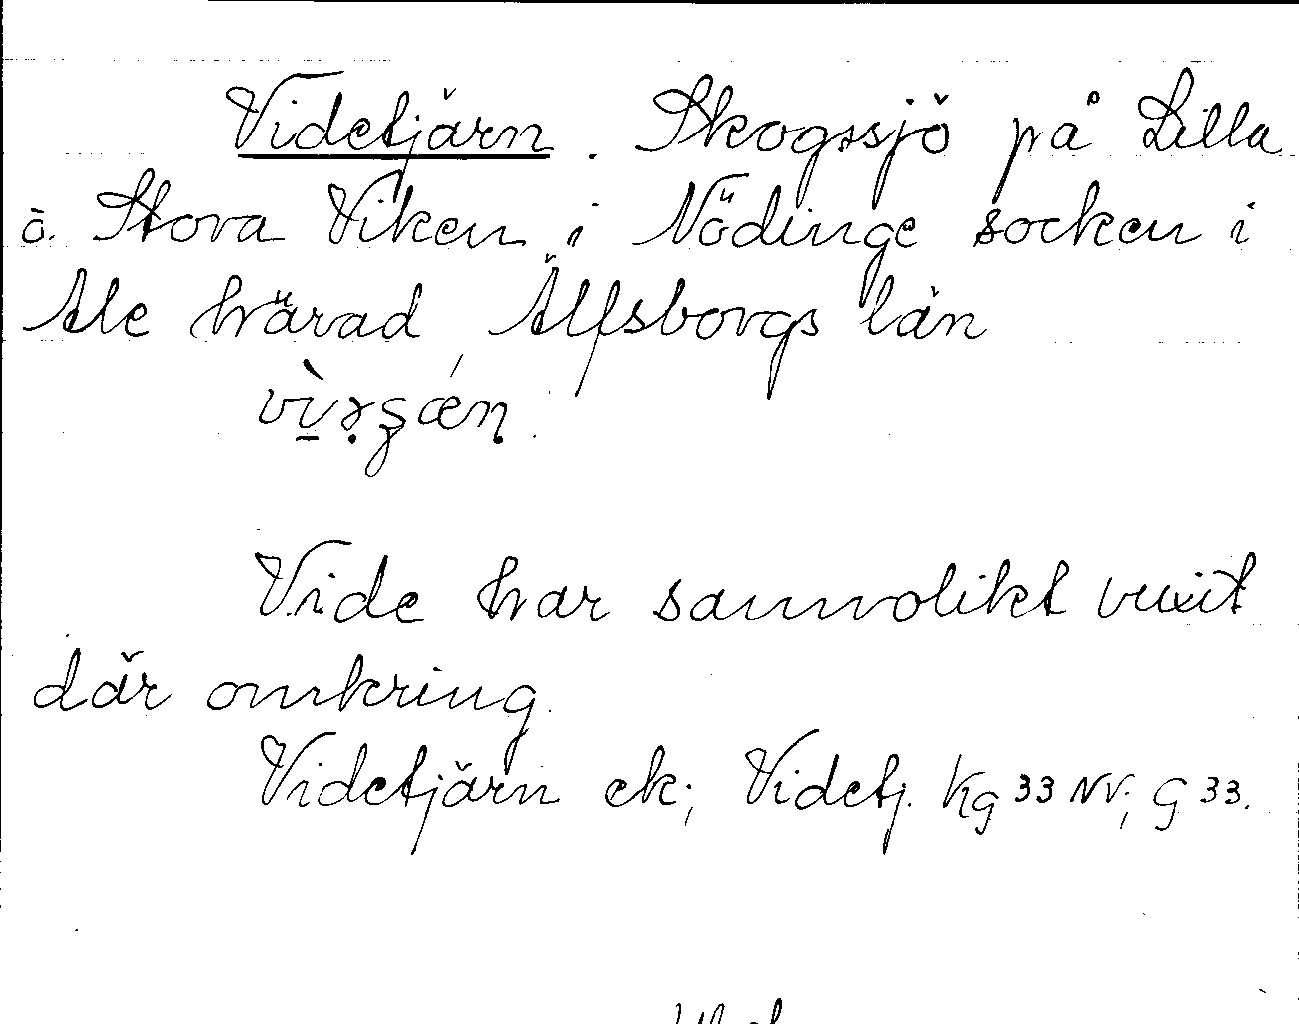 Videtjärn. Skogssjö på Lilla
o. Stora Viken i Nödinge socken i
Ale härad, Älfsborgs län
Vide har sannolikt vuxit
där omkring
Videtjärn ek; Videtj. Kg 33 NV; G 33.